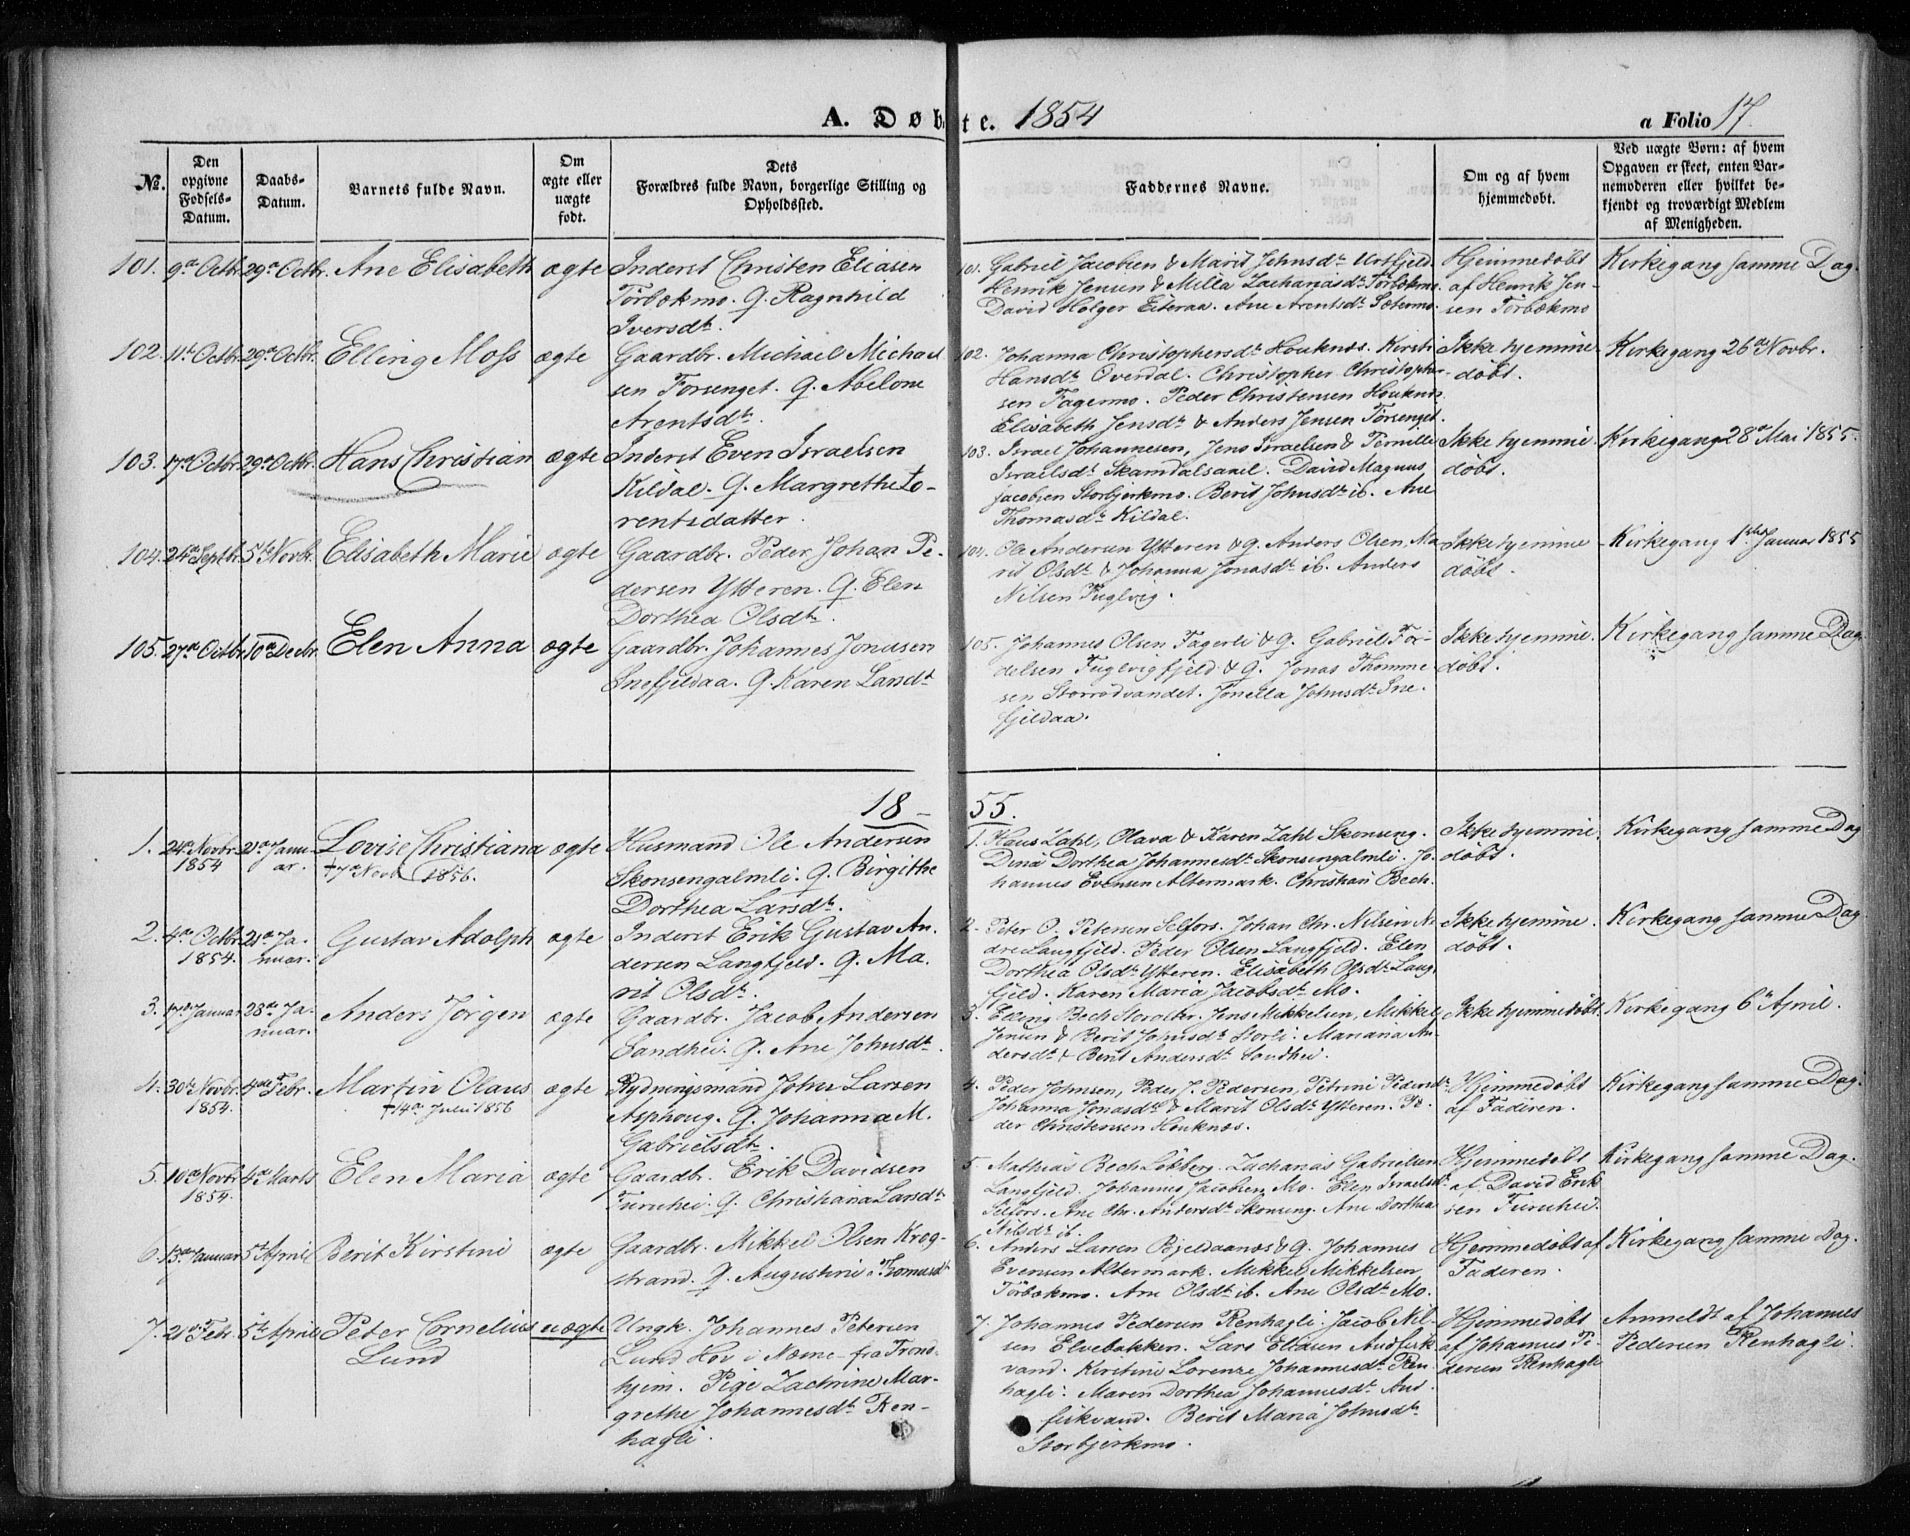 A. Døbte. 1854
a Folio 17.
№.
Den opgivne Fødsels-Datum.
Daabs-Datum.
Barnets fulde Navn.
Om ægte eller uægte født.
Dets Forældres fulde Navn, borgerlige Stilling og Opholdssted.
Faddernes Navne.
Om og af hvem hjemmedøbt.
Ved uægte Born: af hvem Opgaven er skeet, enten Barnemoderen eller hvilket bekjendt og troværdigt Medlem af Menigheden.
101. 9de Octbr. 29de Octbr. Ane Elisabeth ægte Inderst Christen Eliasen
Tørbækmo. Q. Ragnhild
Iversdtr.
101. Gabriel Jacobsen & Marit Johnsdtr Urtfjeld.
Henrik Jensen & Milla Zachariasdtr Tørbækmo
David Holger Eiteraa. Ane Arentsdtr Sætermo.
Hjemmedøbt
af Henrik Jen-
sen Tørbækmo
Kirkegang samme Dag.
102. 11te Octbr. 29de Octbr. Elling Moss ægte Gaardbr. Michael Michael
sen Forsenget. Q. Abelone
Arentsdtr.
102. Johanna Christophersdtr Houknæs. Kirsti
Hansdtr Overdal. Christopher Christopher
sen Fagermo. Peder Christensen Houknæs
Elisabeth Jensdtr & Anders Jensen Forsenget.
Ikke hjemme
døbt.
Kirkegang 26de Novbr.
103. 17de Octbr. 29de Octbr. Hans Christian ægte Inderst Even Israelsen
Kildal. Q. Margrethe Lo-
rentsdatter.
103. Israel Johannesen, Jens Israelsen & Pernille
Israelsdtr Skamdalsaxel. David Magnus
Jacobsen Storbjerkmo. Berit Johnsdtr ib. Ane
Thomasdtr Kildal.
Ikke hjemme
døbt.
Kirkegang 28de Mai 1855.
104. 24de Septbr. 5te Novbr. Elisabeth Marie ægte Gaardbr. Peder Johan Pe-
dersen Ytteren. Q. Elen
Dorthea Olsdtr.
104. Ole Andersen Ytteren & Q. Anders Olsen, Ma-
rit Olsdtr & Johanna Jonasdtr ib. Anders
Nilsen Fuglvig.
Ikke hjemme
døbt.
Kirkegang 1ste Januar 1855
105. 27de Octbr. 10de Decbr. Elen Anna ægte Gaardbr. Johannes Jonasen
Snefjeldaa. Q. Karen Larsdtr
105. Johannes Olsen Fagerli & Q. Gabriel For-
delsen Fuglvigfjeld & Q. Jonas Thomme
sen Storrødvandet. Jonella Johnsdtr Sne-
fjeldaa.
Ikke hjemme.
døbt.
Kirkegang samme Dag.
18-55.
1. 24de Novbr. 1854 21de Janu-
ar. Lovise Christiana ægte Husmand Ole Andersen
† 7de Novb. 1856.
Skonsengalmli. Q. Birgithe
Dorthea Larsdtr.
1. Hans Zahl, Olava & Karen Zahl Skonseng.
Dina Dorthea Johannesdtr Skonsengalmli. Jo-
hannes Evensen Altermark. Christian Bech.
Ikke hjemme.
døbt.
Kirkegang samme Dag
2. 4de Octbr. 1854. 21de Ja-
nuar. Gustav Adolph ægte Inderst Erik Gustav An-
dersen Langfjeld. Q. Ma-
rit Olsdtr.
2. Peter O. Petersen Selfors. Johan Chr. Nilsen N-
dre Langfjeld. Peder Olsen Langfjeld. Elen
Dorthea Olsdtr Ytteren. Elisabeth Olsdtr Lang-
fjeld. Karen Maria Jacobsdtr Mo.
Ikke hjemme.
døbt.
Kirkegang samme Dag
3. 17de Januar 28de Ja-
nuar. Anders Jørgen ægte Gaardbr. Jacob Andersen
Sandhei. Q. Ane Johnsdtr.
3. Elling Bech Jens Mikkelsen, Mikkel
Jensen & Berit Johnsdtr Storli. Mariana An-
dersdtr & Berit Andersdtr Sandhei.
Ikke hjemmedøbt.
Kirkegang 6te April.
4. 30te Novbr. 1854. 4de Febr. Martin Olaus ægte Rydningsmand Johan Larsen
† 14de Juni 1856
Asphoug. Q. Johanna M.
Gabrielsdtr.
4. Peder Johnsen, Peder J. Pedersen, Petrine Pedersdtr
Johanna Jonasdtr & Marit Olsdtr Ytteren. Pe-
der Christensen Houknæs.
Hjemmedøbt
af Faderen.
Kirkegang samme Dag.
5. 10de Novbr. 1854. 4de Marts Elen Maria ægte Gaardbr. Erik Davidsen
Furuhei. Q. Christiana Larsdtr
5. Mathias Bech Løkberg. Zacharias Gabrielsen
Langfjeld. Johannes Jacobsen Mo. Elen Israelsdtr
Selfors. Ane Chr. Andersdtr Skonseng. Ane Dorthea
Nilsdtr ib.
Hjemmedøbt
af David Erik
sen Furuhei.
Kirkegang samme Dag.
6. 13de Januar 5te April Berit Kirstine ægte Gaardbr. Mikkel Olsen Krog-
strand. Q. Augustine Thomasdtr
6. Anders Larsen Bjeldaanæs & Q. Johannes
Evensen Altermark. Mikkel Mikkelsen
Tørbækmo. Ane Olsdtr ib. Ane Olsdtr Mo.
Hjemmedøbt af
Faderen.
Kirkegang samme Dag.
7. 21de Febr. 5te April Peter Cornelius uægte Ungk. Johannes Petersen
Lund
Lund Hov i Næsne fra Trond-
hjem. Pige Zachrine Mar-
grethe Johannesdtr Ren-
hagli.
7. Johannes Pedersen Renhagli. Jacob Nil-
sen Elvebakken. Lars Eliasen Andfisk
vand. Kirstine Lorenze Johannesdtr Ren-
hagli. Maren Dorthea Johannesdtr And-
fiskvand. Berit Maria Johnsdtr
Storbjerkmo.
Hjemmedøbt
af Johannes Pe-
dersen Renhagli
Anmeldt af Johannes
Pedersen Renhagli.